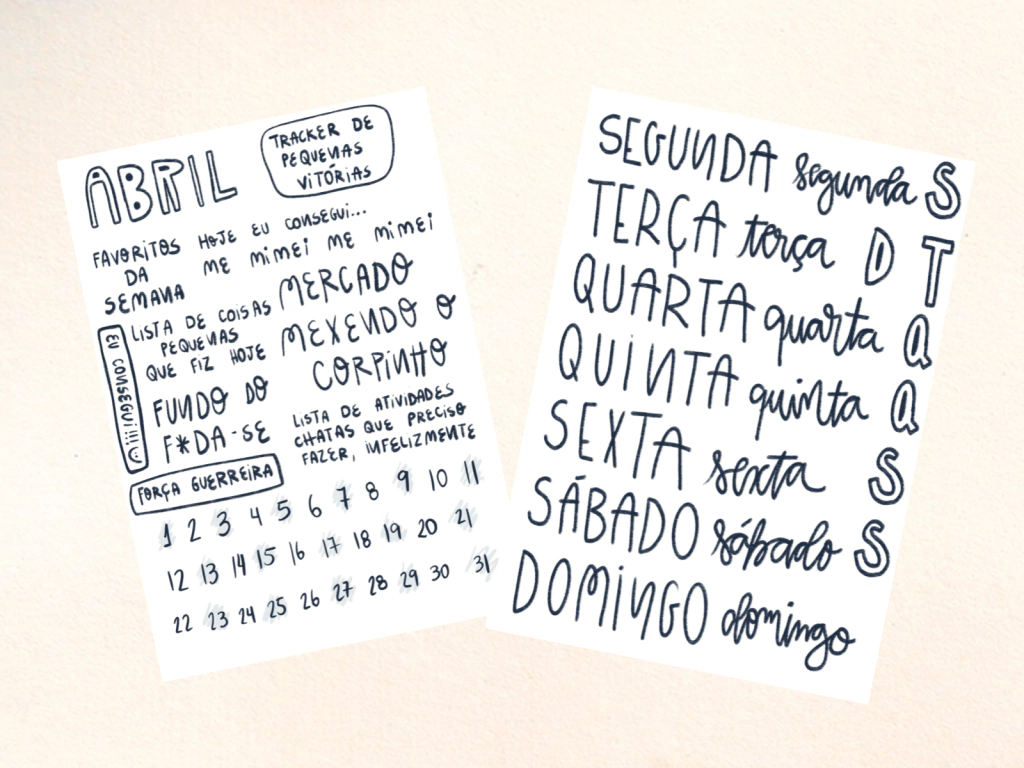 ABRIL
TRACKER DE
PEQUENAS
VITÓRIAS
FAVORITOS
DA
SEMANA
HOJE EU CONSEGUI...
ME MIMEI ME MIMEI
LISTA DE COISAS
PEQUENAS
QUE FIZ HOJE
MERCADO
MEXENDO O
CORPINHO
EU CONSEGUI!!!
FUNDO DO
F*DA-SE
LISTA DE ATIVIDADES
CHATAS QUE PRECISO
FAZER, INFELIZMENTE
FORÇA GUERREIRA
1 2 3 4 5 6 7 8 9 10 11
12 13 14 15 16 17 18 19 20 21
22 23 24 25 26 27 28 29 30 31
SEGUNDA segunda S
TERÇA terça D T
QUARTA quarta Q
QUINTA quinta Q
SEXTA sexta S
SÁBADO sábado S
DOMINGO domingo